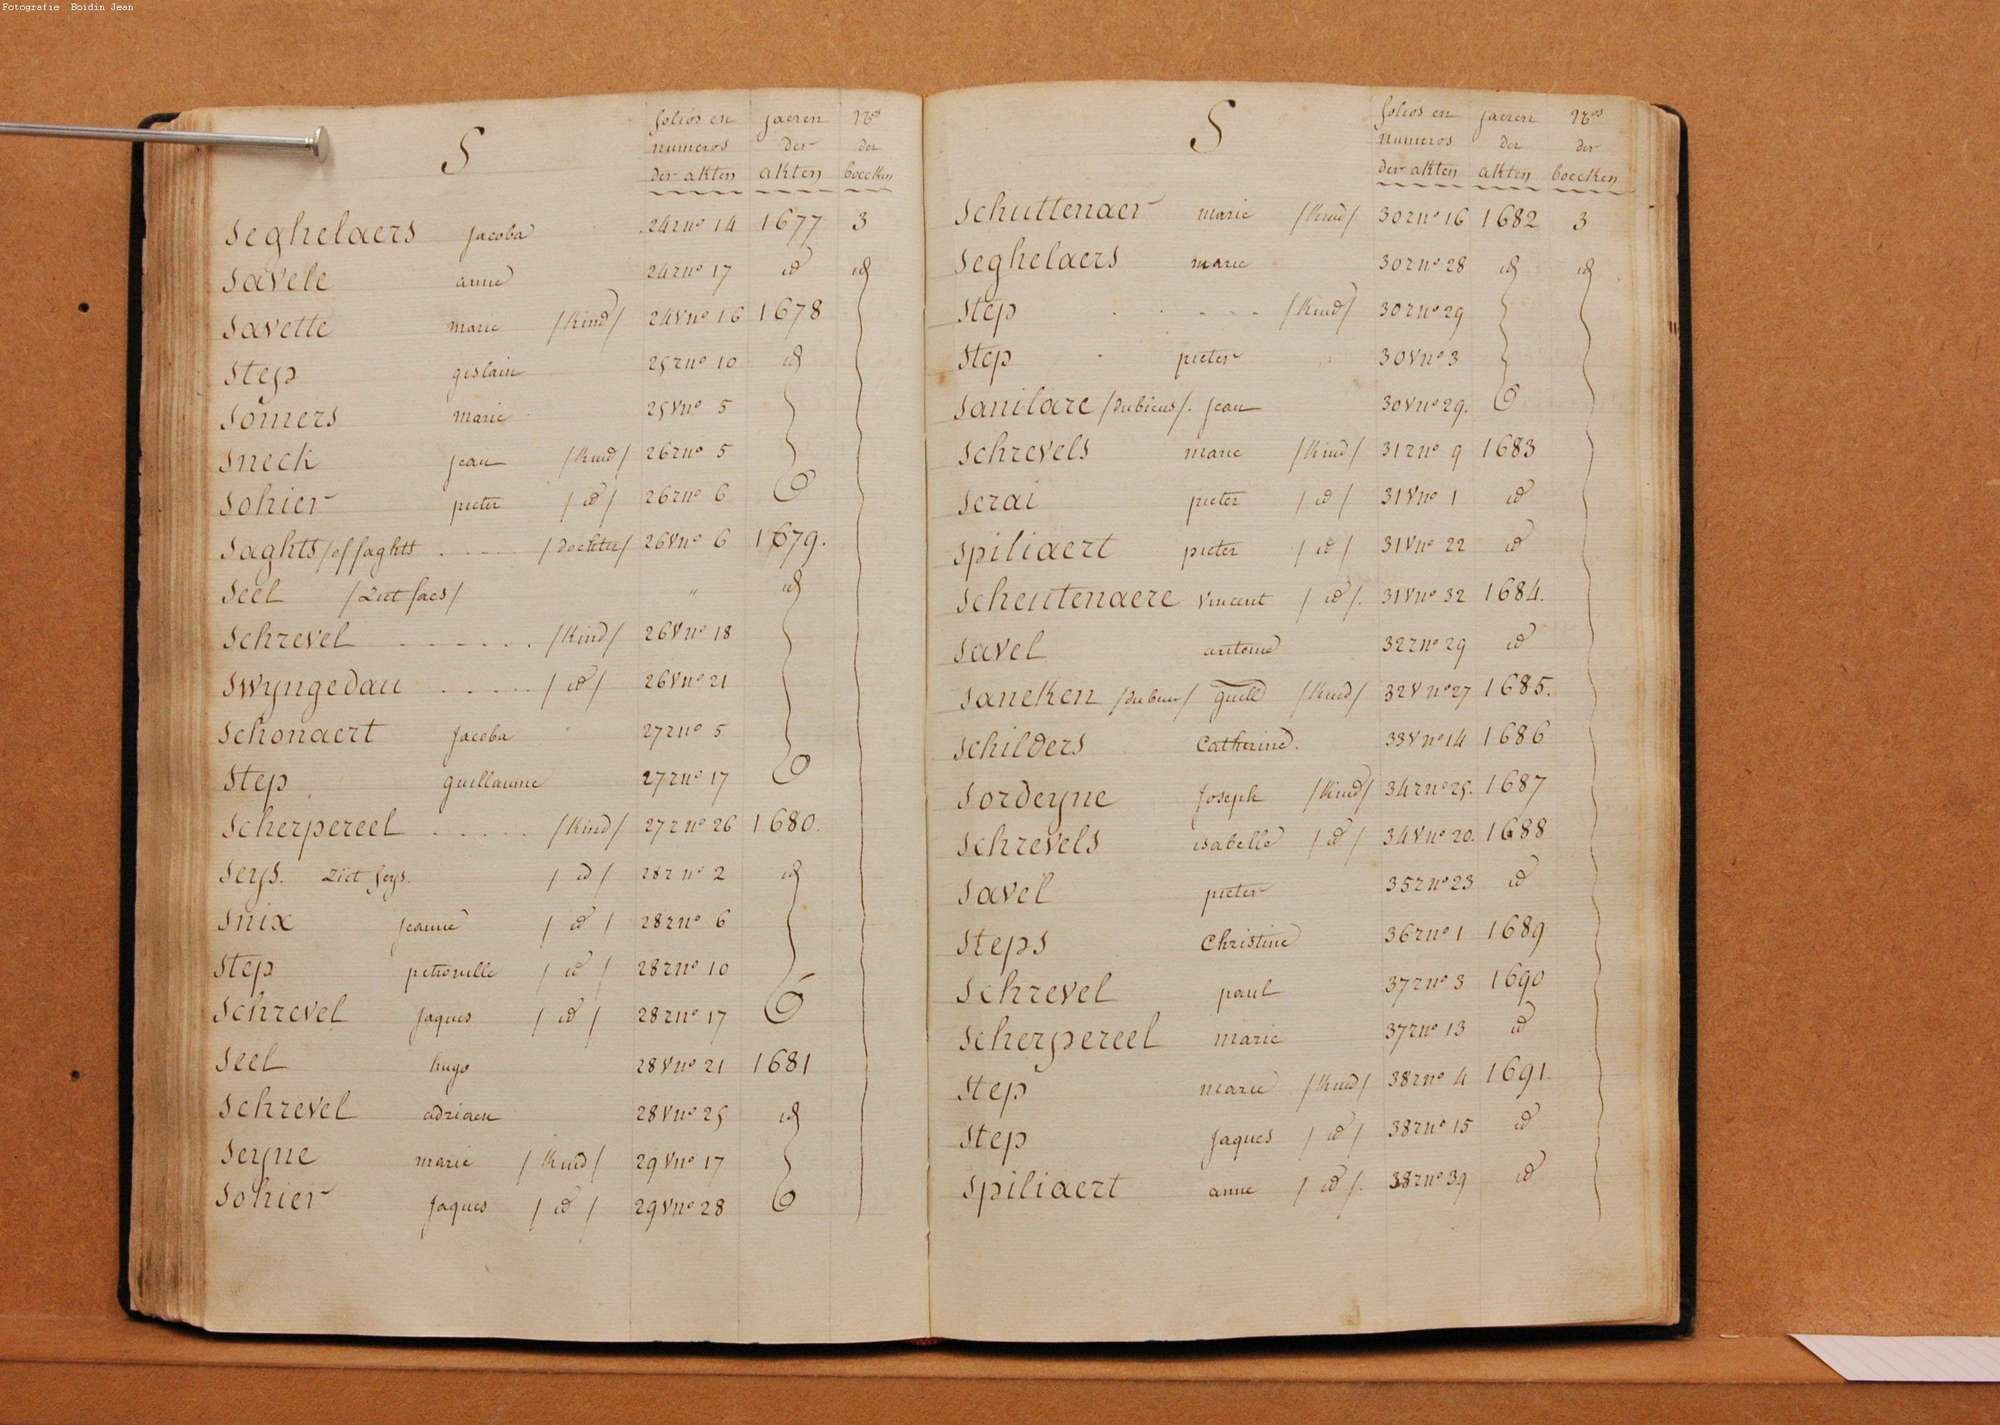 Fotografie Boidin Jean
S
folios en numeros der akten
jaeren der akten
Nos der boecken
Seghelaers Jacoba 24 r no 14 1677 3
Savele anne 24 r no 17 id id
Savette marie /Kind/ 24 v no 16 1678
Step gislain 25 r no 10 id
Somers marie 25 v no 5
Sneck jean /Kind/ 26 r no 5
Sohier pieter /id/ 26 r no 6
Saghts /of faghts ..... /Dochter/ 26 v no 6 1679.
Seel /Ziet faes/ " id
Schrevel ...... /Kind/ 26 v no 18
Swyngedau ..... /id/ 26 v no 21
Schonaert Jacoba 27 r no 5
Step guillaume 27 r no 17
Scherpereel ..... /Kind/ 27 r no 26 1680.
Seys. Ziet feys. /id/ 28 r no 2 id
Snix jeanne /id/ 28 r no 6
Step petronille /id/ 28 r no 10
Schrevel Jaques /id/ 28 r no 17
Seel hugo 28 v no 21 1681
Schrevel adriaen 28 v no 25 id
Seyne marie /Kind/ 29 v no 17
Sohier Jaques /id/ 29 v no 28
S
folios en numeros der akten
jaeren der akten
Nos der boecken
Schuttenaer marie /Kind/ 30 r no 16 1682 3
Seghelaers marie 30 r no 28 id id
Step ..... /Kind/ 30 r no 29
Step pieter 30 v no 3
Sanilare /Dubieus/. Jean 30 v no 29.
Schrevels marie /Kind/ 31 r no 9 1683
Serai pieter /id/ 31 v no 1 id
Spiliaert pieter /id/ 31 v no 22 id
Scheutenaere Vincent /id/. 31 v no 32 1684.
Savel antoine 32 r no 29 id
Saneken /Dubieus/ guill /Kind/ 32 v no 27 1685.
Schilders Catherine. 33 v no 14 1686
Sordeyne Joseph /Kind/ 34 r no 25. 1687
Schrevels isabelle /id/ 34 v no 20. 1688
Savel pieter 35 r no 23 id
Steps Christine 36 r no 1 1689
Schrevel paul 37 r no 3 1690
Scherpereel marie 37 r no 13 id
Step marie /Kind/ 38 r no 4 1691.
Step Jaques /id/ 38 r no 15 id
Spiliaert anne /id/. 38 r no 39 id